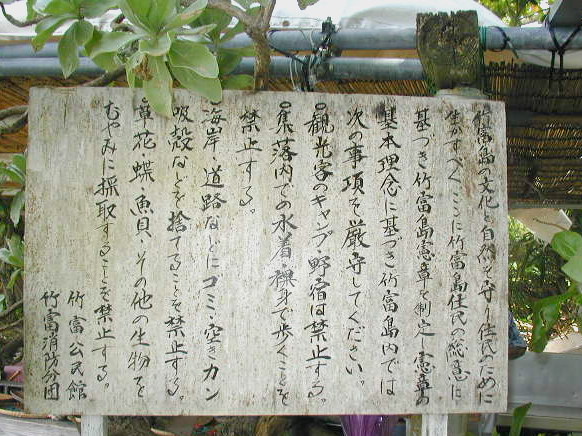 竹富島の文化と自然を守り住民のために
生かすべく、ここに竹富島住民の総意に
基づき竹富島憲章を制定、憲章
基本理念に基づき竹富島内では
次の事項を厳守してください。
●観光客のキャンプ・野宿は禁止する。
●集落内での水着・裸身で歩くことを
禁止する。
●海岸、道路などにゴミ・空きカン
吸殻などを捨てることを禁止する。
●草花・蝶・魚貝、その他の生物を
むやみに採取することを禁止する。
竹富公民館
竹富消防分団